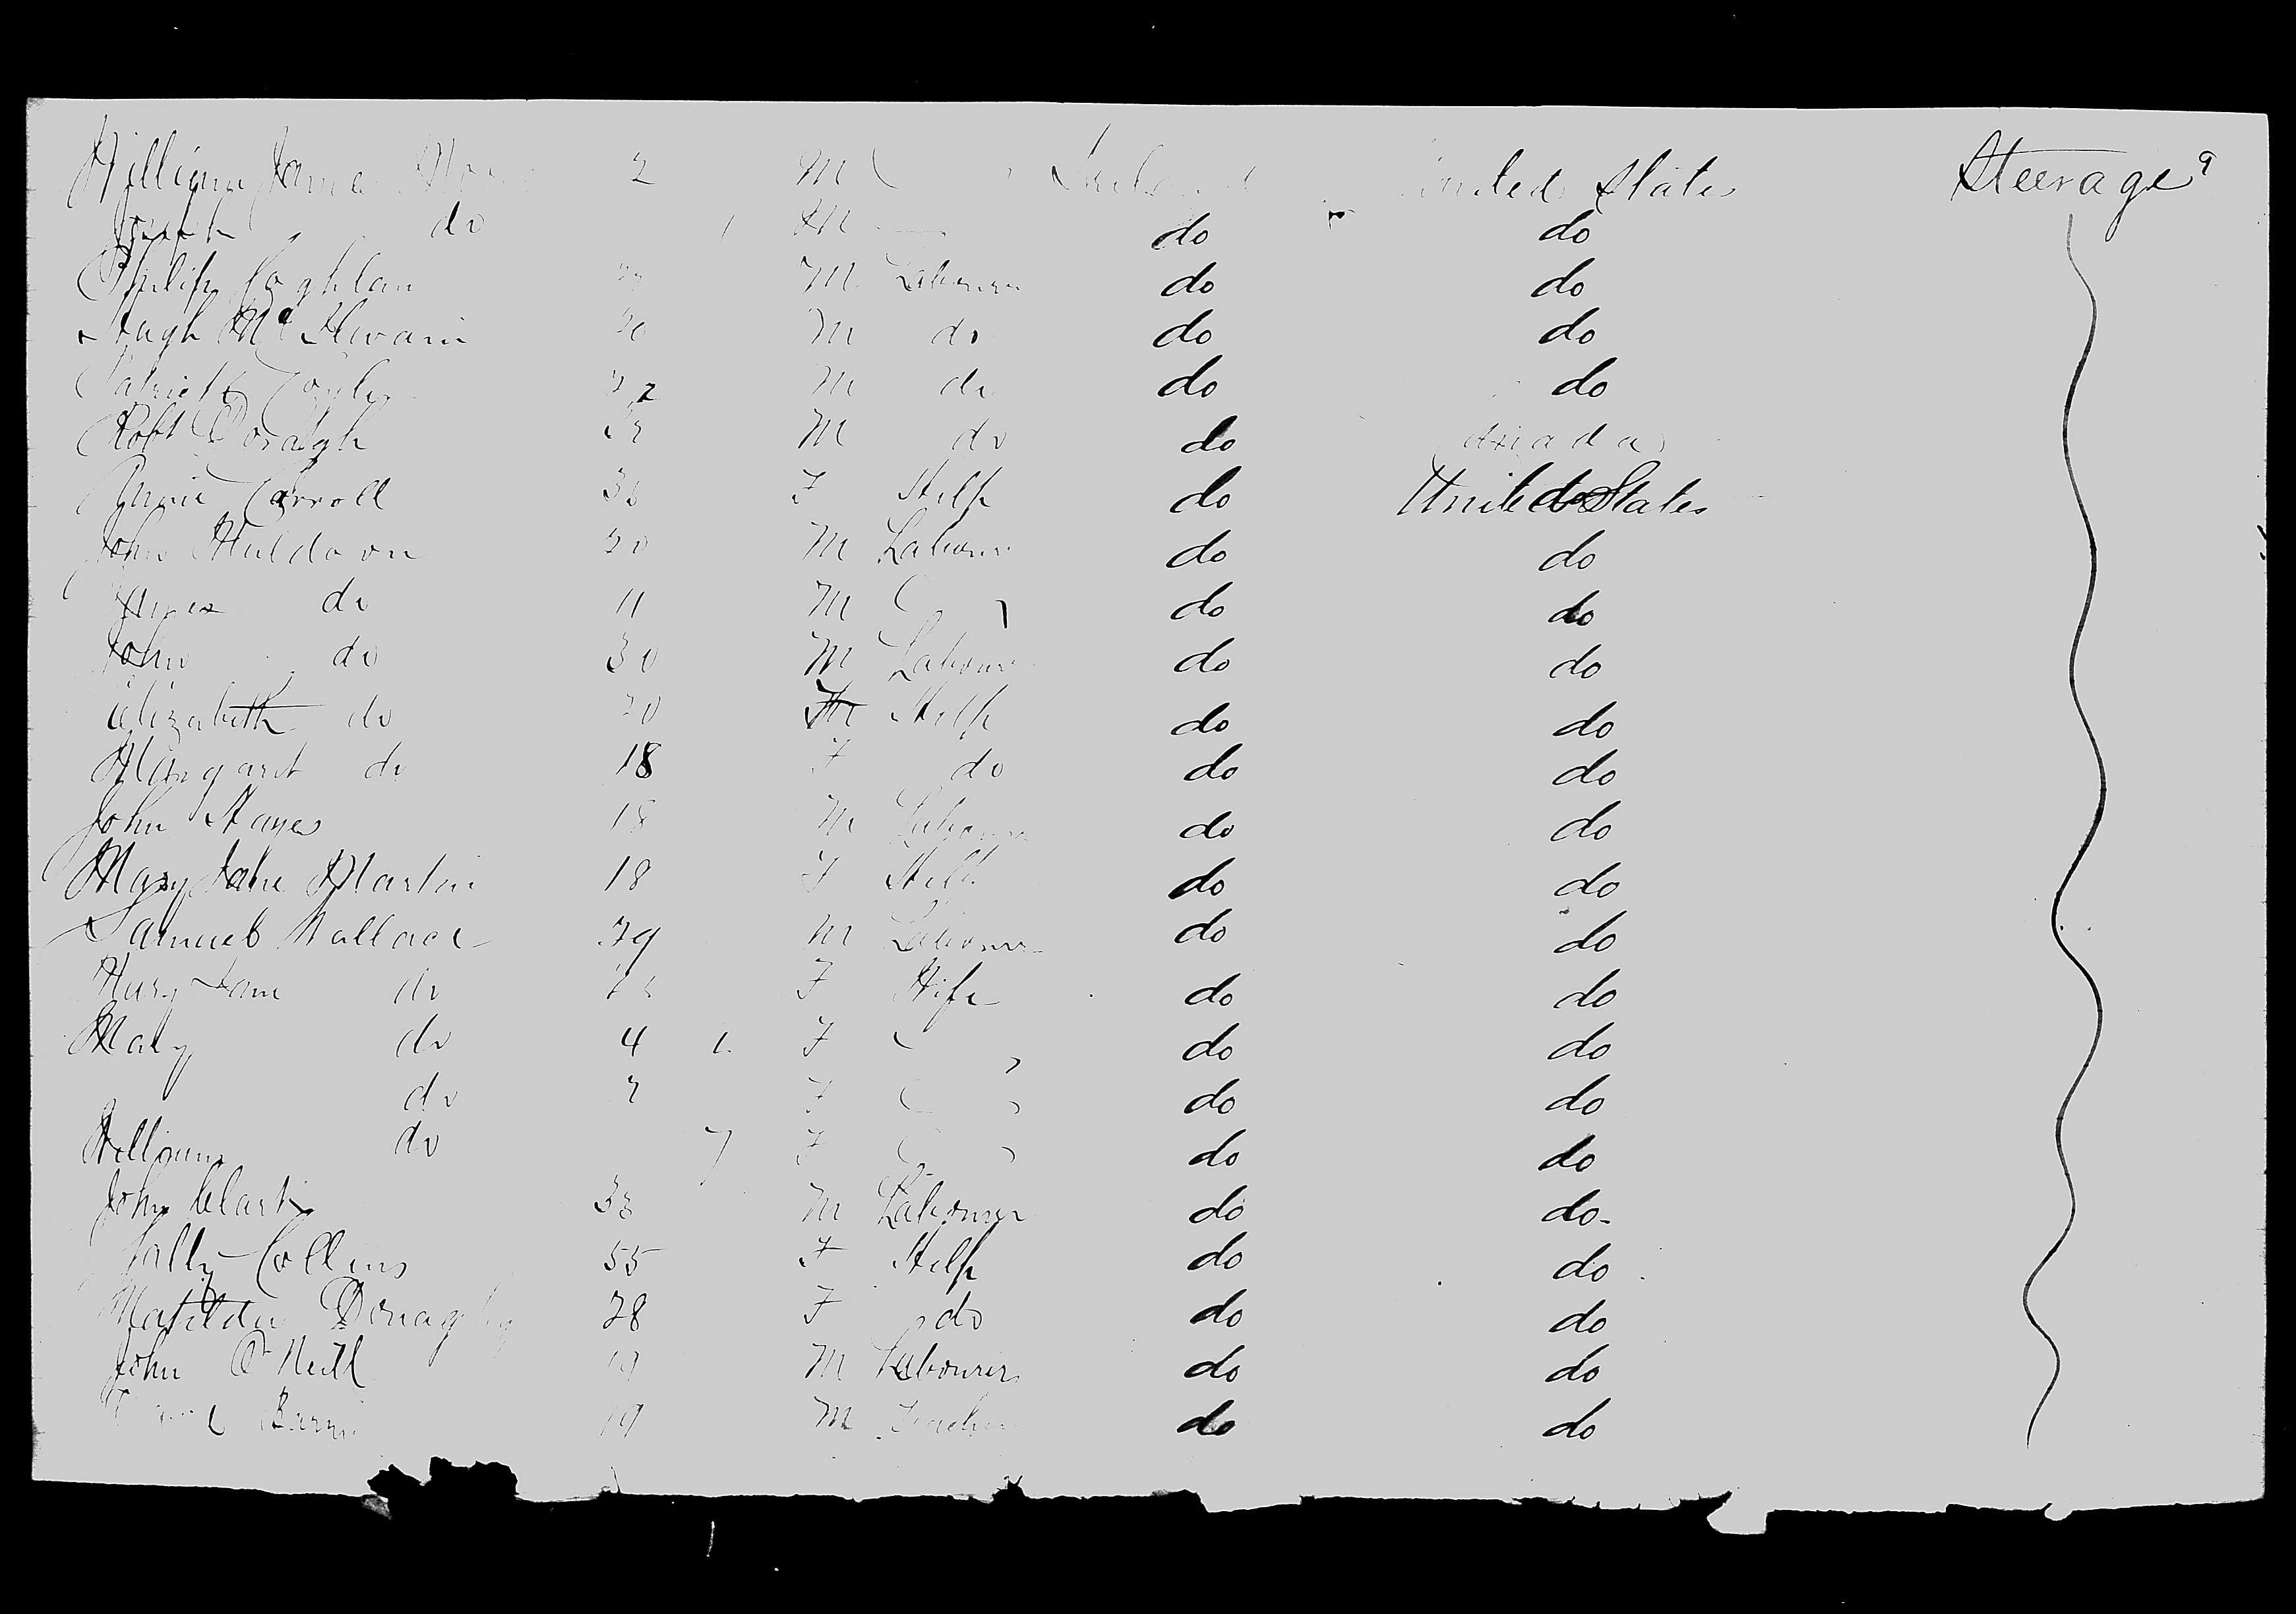 William James 2 M Ireland United States Steerage
Joseph do M do do
Philip Coghlan M Labourer do do
Hugh McIlwain 20 M do do do
Patrick 22 M do do do
Robt M do do
Annie Carroll F Help do United States
John Muldoon 20 M Labourer do do
James do 11 M do do
John do 30 M Labourer do do
Elizabeth do 20 F Help do do
Margaret do 18 F do do do
John Hayes 18 M Labourer do do
Mary Jane Martin 18 F Help do do
Samuel Wallace 29 M Labourer do do
Mary Jane do F Wife do do
Mary do 4 F do do
do 2 F do do
William do 7 F do do
John Clark 33 M Labourer do do
Sally Collins 55 F Help do do
Matilda Donaghy 28 F do do do
John O'Neill 19 M Labourer do do
19 M do do